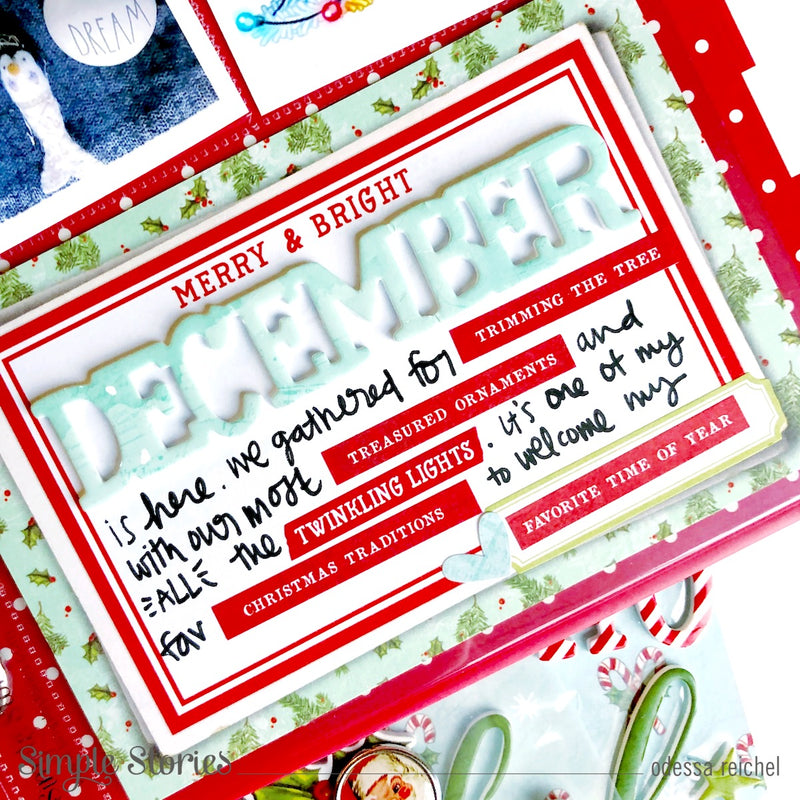 DREAM
MERRY & BRIGHT
DECEMBER
is here. we gathered for TRIMMING THE TREE
with our most TREASURED ORNAMENTS and
ALL the TWINKLING LIGHTS. it's one of my
fav CHRISTMAS TRADITIONS to welcome my
FAVORITE TIME OF YEAR
Simple Stories
odessa reichel